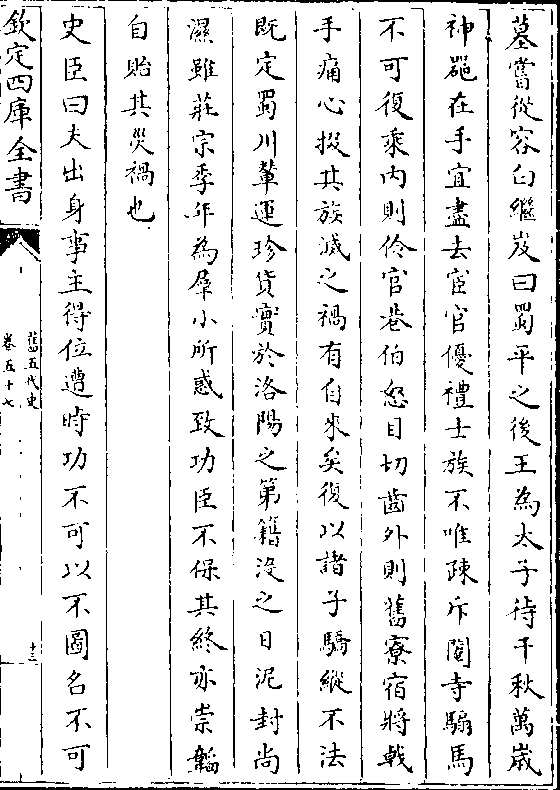 墓嘗從容白繼岌曰蜀平之後王為太子待千秋萬歲
神器在手宜盡去宦官優禮士族不唯疎斥閹寺騸馬
不可復乘内則伶官巷伯怒目切齒外則舊寮宿將戟
手痛心掇其族滅之禍有自來矣復以諸子驕縱不法
既定蜀川輦運珍貨實於洛陽之第籍沒之日泥封尚
濕雖莊宗季年為羣小所惑致功臣不保其終亦崇韜
自貽其災禍也
史臣曰夫出身事主得位遭時功不可以不圖名不可
欽定四庫全書
舊五代史
卷五十七
十三